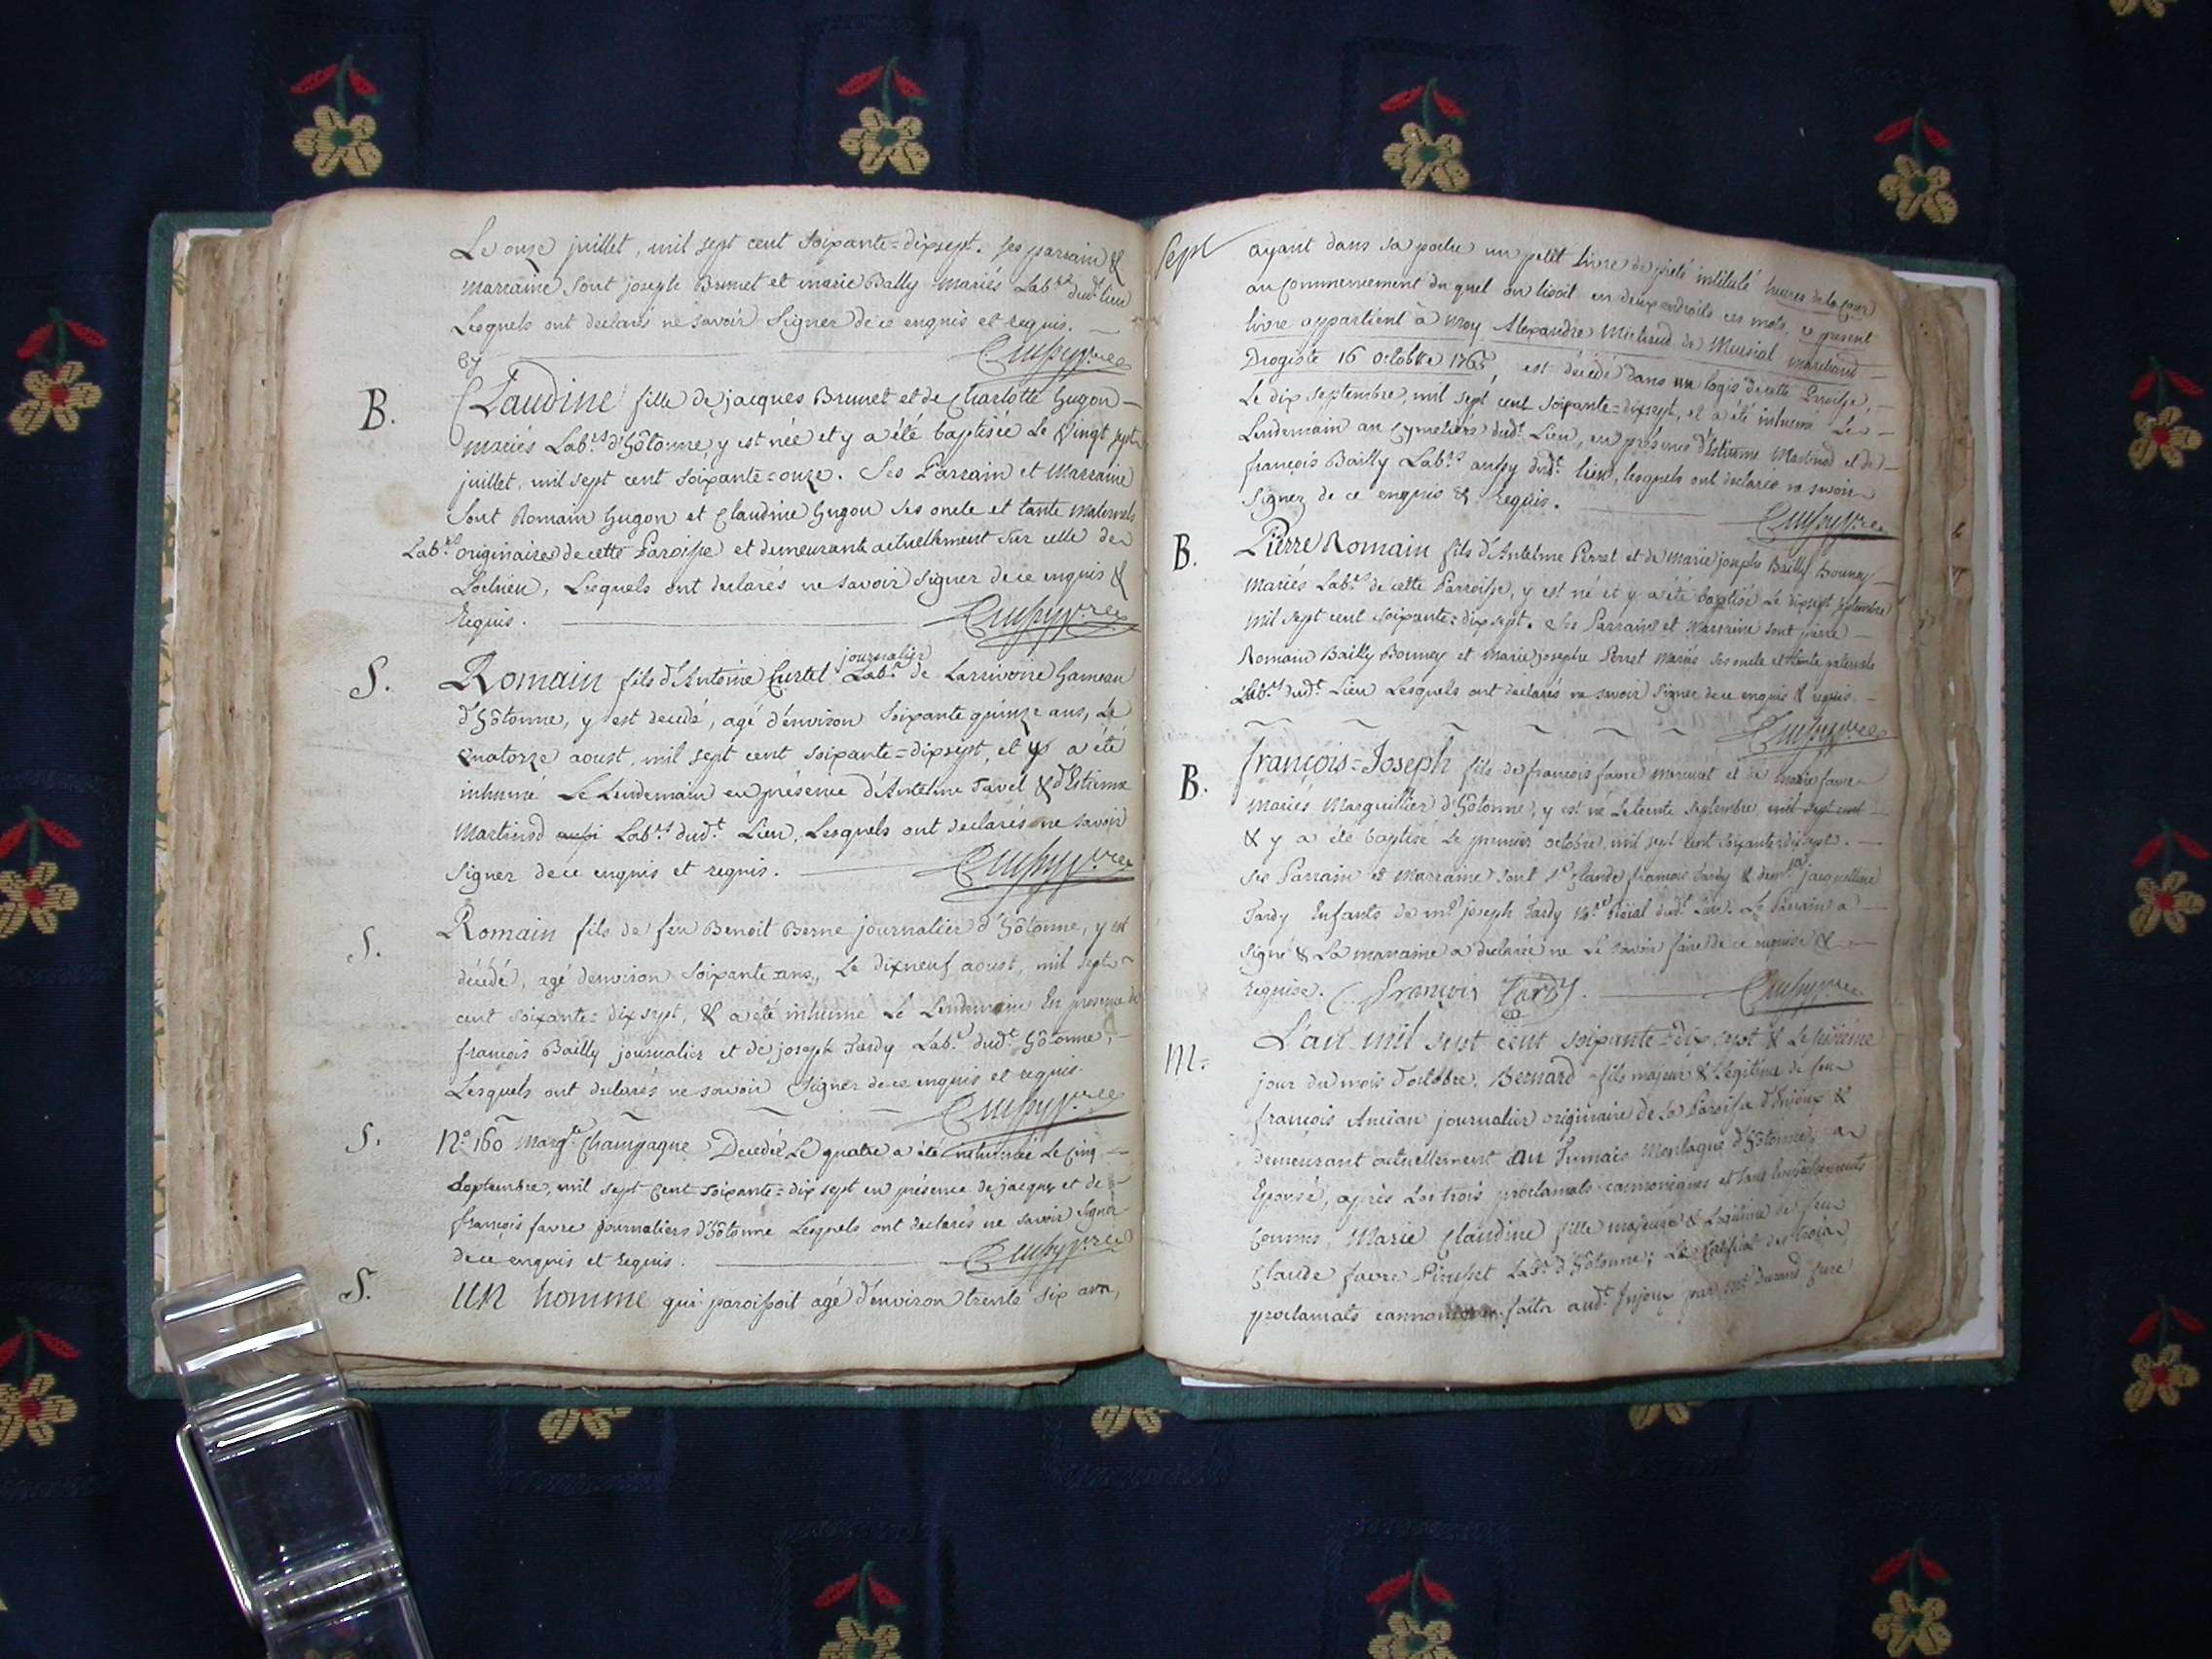 Le onze juillet, mil sept cent soixante=dixsept. ses parrain &
marraine sont joseph Brunet et marie Bally mariés Lab.rs dud.t lieu
Lesquels ont declarés ne savoir signer de ce enquis et requis.
B.
Claudine fille de jacques Brunet et de Charlotte Gugon
mariés Lab.rs d'hôtonne y est née et y a été baptisée Le vingt sept
juillet, mil sept cent soixante=onze. Ses Parrain et Marraine
sont Romain Gugon et Claudine Gugon ses oncle et tante maternels
Lab.rs originaires de cette Paroisse et demeurants actuellement sur celle de
Lochieu, Lesquels ont declarés ne savoir signer de ce enquis &
requis.
S.
journalier
Romain fils d'Antoine Curtet Lab.r de Larrivoire hameau
d'hôtonne, y est decedé, agé d'environ soixante quinze ans, Le
quatorze aoust, mil sept cent soixante=dixsept, et y a été
inhumé Le Lendemain en présence d'Antelme Favel & d'Estienne
Martinod aussi Lab.rs dud.t Lieu, Lesquels ont declarés ne savoir
signer de ce enquis et requis.
S.
Romain fils de feu Benoit Berne journalier d'hôtonne, y est
décédé, agé denviron soixante ans, Le dixneuf aoust, mil sept
cent soixante=dixsept, & a été inhumé Le Lendemain En presence de
françois Bailly journalier et de joseph Tardy Lab.r dud.t hôtonne,
Lesquels ont declarés ne savoir signer de ce enquis et requis.
S.
N.o 160 Marg.te Champagne Decedée Le quatre a été inhumée Le cinq
septembre, mil sept cent soixante=dix sept en présence de jacques et de
françois favre journaliers d'hôtonne Lesquels ont declarés ne savoir signer
de ce enquis et requis.
S.
Un homme qui paroissoit agé d'environ trente six ans,
Sept
ayant dans sa poche un petit livre de pieté intitulé heures de la Cour
au Commencement du quel on lisoit en deux endroits ces mots, ce present
livre appartient à moy Alexandre Michaud de marchand
Drogiste 16 octobre 1763, est décédé dans un logis de cette Paroisse,
Le dix septembre, mil sept cent soixante=dixsept, et a été inhumé Le
Lendemain au Cymetière dud.t Lieu, en présence d'Estienne Martinod et de
françois Bailly Lab.rs aussy dud.t lieu, lesquels ont declarés ne savoir
signer de ce enquis & requis.
B.
Pierre Romain fils d'Antelme Perret et de marie josephe Bailly Bonney
mariés Lab.rs de cette Parroisse, y est né et y a été baptisé Le dixsept septembre
mil sept cent soixante=dixsept. Ses Parrain et Marraine sont pierre
Romain Bailly Bonney et marie josephe Perret mariés ses oncle et tante paternels
Lab.rs dud.t Lieu Lesquels ont declarés ne savoir signer de ce enquis & requis.
B.
françois=Joseph fils de françois favre et de marie favre
mariés Marguillier d'hôtonne, y est né Le trente septembre mil sept cent
& y a été baptisé Le premier octobre, mil sept cent soixante dixsept.
ses Parrain et Marraine sont s.r Claude françois Tardy & dem.lle jacqueline
Tardy Enfants de m.e joseph Tardy roïal dud.t Lieu. Le Parrain a
signé & La marraine a declaré ne Le savoir faire de ce enquise &
requise. françois Tardy.
M.
L'an mil sept cent soixante=dix sept & Le
jour du mois d'octobre, Bernard fils majeur & Légitime de feu
françois Ancian journalier originaire de la Paroisse d'Injoux &
demeurant actuellement au Jumais Montagne d'hôtonne, a
Epousé, après Les trois proclamats cannoniques et sans empêchements
connus, Marie Claudine fille majeure & Légitime de feu
Claude favre Lab.r d'hôtonne; Le Certificat des trois
proclamats faits aud.t Injoux par m.re Durand Curé